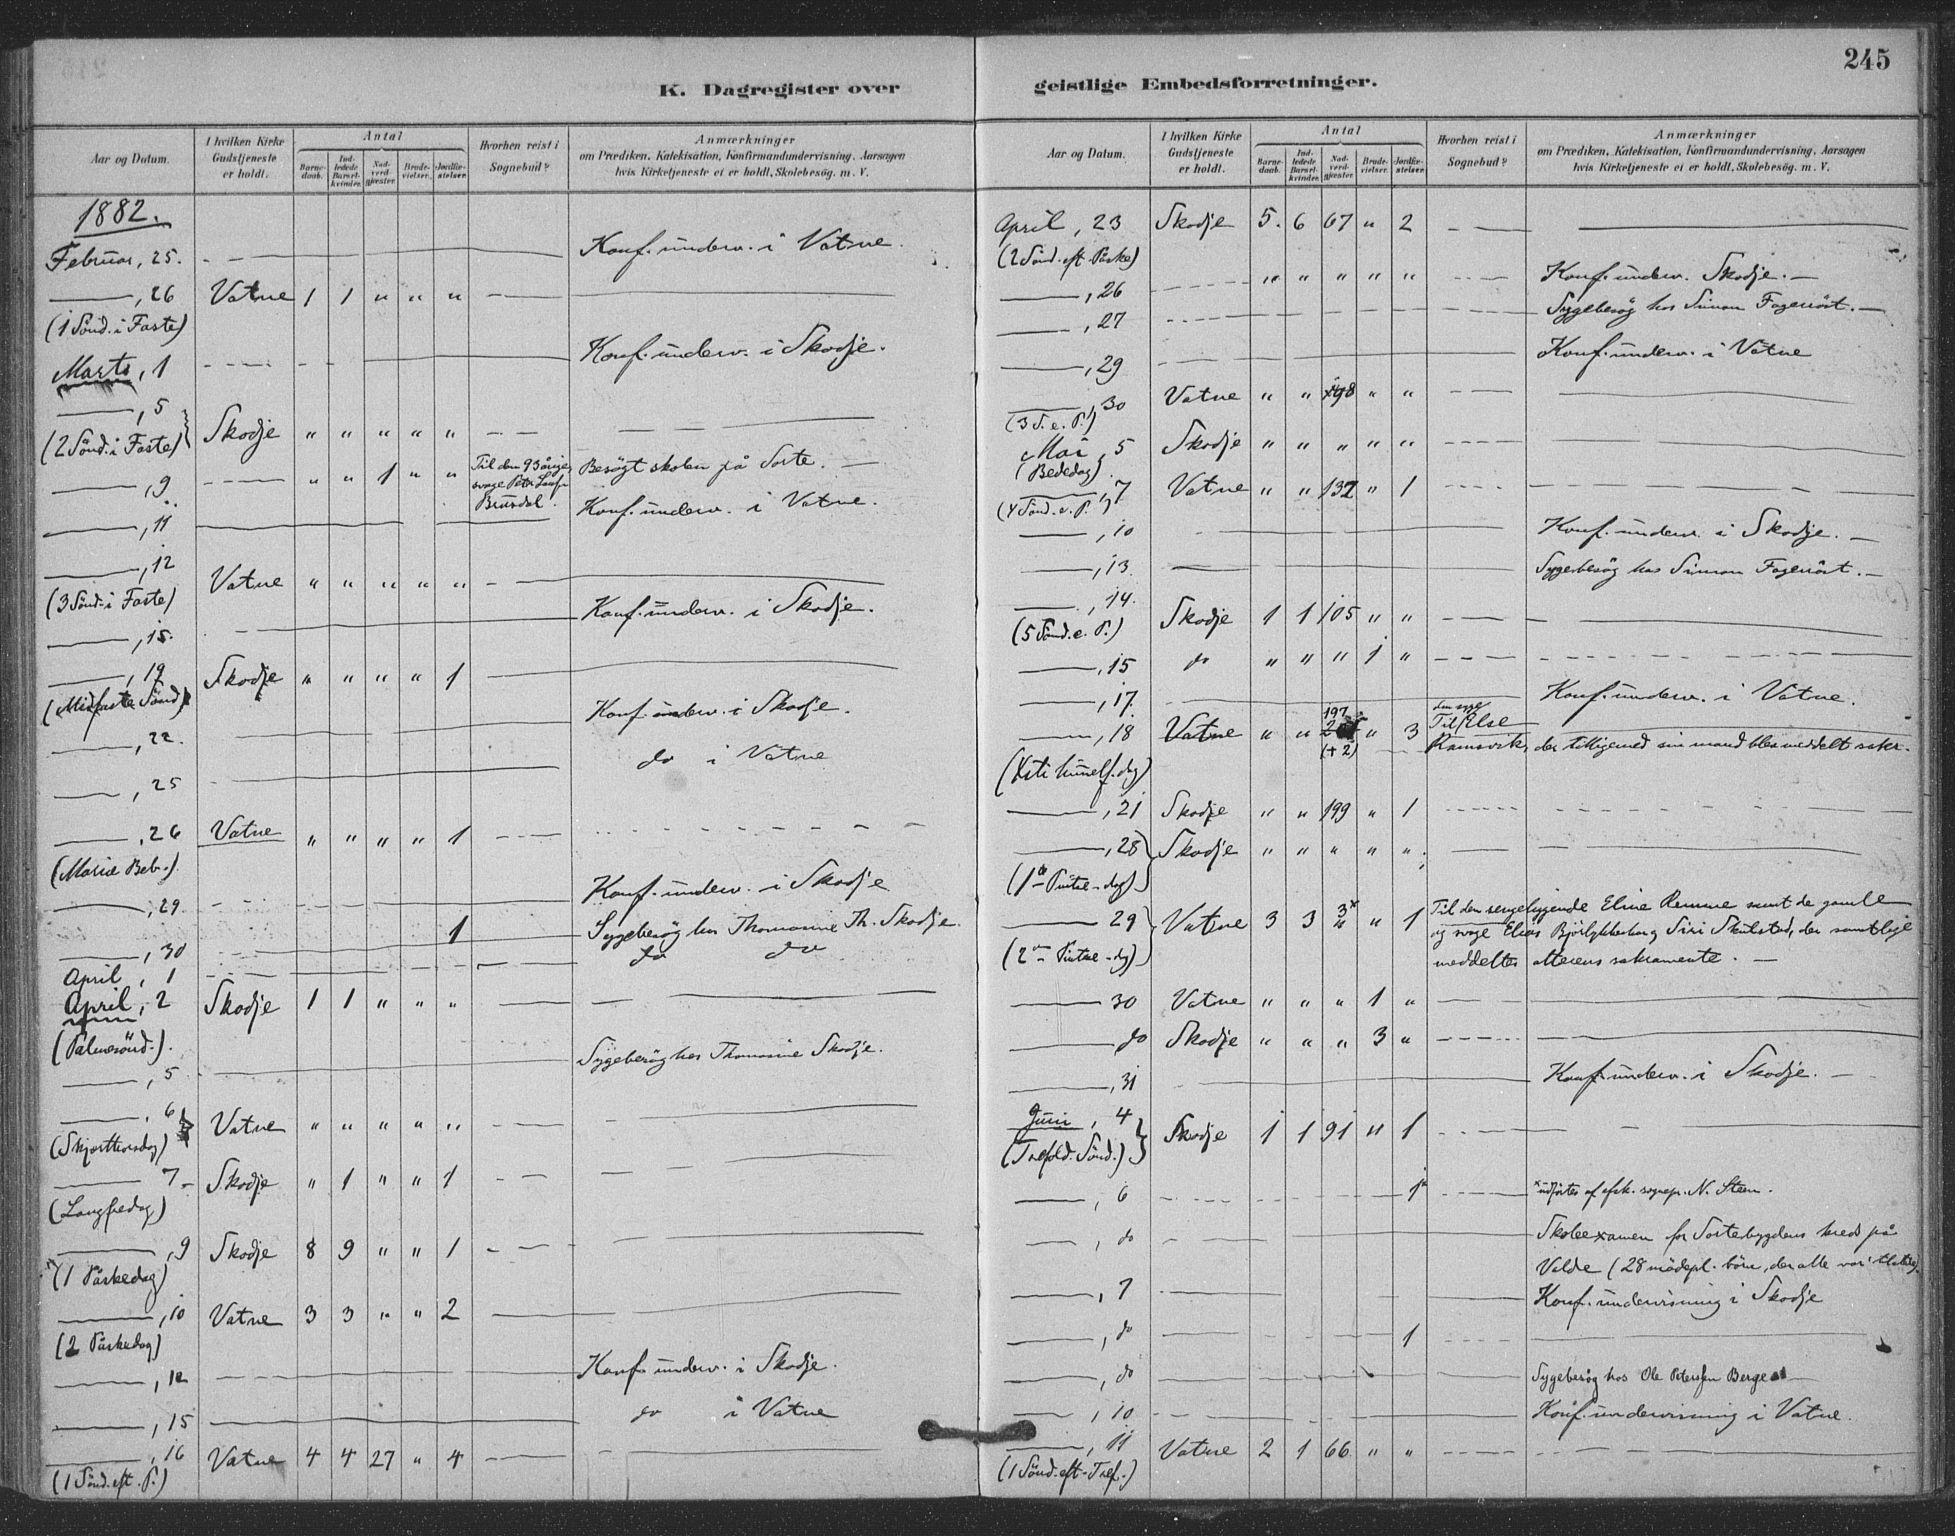 245
K. Dagregister over geistlige Embedsforretninger.
Aar og Datum.
I hvilken Kirke Gudstjeneste er holdt.
Antal
Barnedaab.
Indledede Barselkvinder.
Nadverdgjæster.
Brudevielser.
Jordfæstelser.
Hvorhen reist i Sognebud?
Anmærkninger
om Prædiken, Katekisation, Konfirmandundervisning, Aarsagen
hvis Kirketjeneste ei er holdt, Skolebesøg. m. V.
1882.
Februar, 25. Konf. underv. i Vatne.
—, 26 Vatne 1 1 " " "
(1 Sönd. i Faste)
Marts, 1 Konf. underv. i Skodje.
—, 5 Skodje " " " " "
(2 Sönd. i Faste)
—, 9 " " 1 " " Til den 93 årige svage Brusdal. Besögt skolen på Sorte.
—, 11 Konf. underv. i Vatne.
—, 12 Vatne " " " " "
(3 Sönd. i Faste)
—, 15. Konf. underv. i Skodje.
—, 19 Skodje " " " " 1
(Midfaste Sönd)
—, 22. Konf. underv. i Skodje.
—, 25 do i Vatne
—, 26 Vatne " " " " 1
(Mariæ Beb.)
—, 29 Konf. underv. i Skodje
—, 30 1 Sygebesög hos Thomasine Th. Skodje.
April, 1 do do
April, 2 Skodje 1 1 " " "
(Palmesönd.)
—, 5 Sygebesög hos Thomasine Skodje.
—, 6 Vatne " " " " "
(Skjærthorsdag)
— 7 Skodje " 1 " " 1
(Langfredag)
—, 9 Skodje 8 9 " " 1
(1 Påskedag)
—, 10 Vatne 3 3 " " 2
(2 Påskedag)
—, 12 Konf. underv. i Skodje.
—, 15 do i Vatne
—, 16 Vatne 4 4 27 " 4
(1 Sönd. eft. P.)
Aar og Datum.
I hvilken Kirke Gudstjeneste er holdt.
Antal
Barnedaab.
Indledede Barselkvinder.
Nadverdgjæster.
Brudevielser.
Jordfæstelser.
Hvorhen reist i Sognebud?
Anmærkninger
om Prædiken, Katekisation, Konfirmandundervisning, Aarsagen
hvis Kirketjeneste ei er holdt, Skolebesøg. m. V.
April, 23 Skodje 5. 6 67 " 2
(2 Sönd. eft. Påske)
—, 26 " " " " " Konf. underv. Skodje.
—, 27 Sygebesög hos Simon Fageröst.
—, 29 Konf. underv. i Vatne
—, 30 Vatne " " 98 " "
(3 S. e. P.)
Mai, 5 Skodje " " " " "
(Bededag)
—, 7 Vatne " " 132 " 1
(4 Sönd. e. P.)
—, 10 Konf. underv. i Skodje.
—, 13 Sygebesög hos Simon Fageröst.
—, 14. Skodje 1 1 105 " "
(5 Sönd. e. P.)
—, 15 do " " " 1 "
—, 17. Konf. underv. i Vatne.
—, 18 Vatne " " 197 (+2) " 3 Til den syge Else Ramsvik, der tilligemed sin mand blev meddelt sakr.
(Kristi himmelf. dag)
—, 21 Skodje " " 199 " 1
—, 28 Skodje " " " " "
(1ste Pintse-dag)
— 29 Vatne 3 3 3x " 1 Til den sengeliggende Eline Remme samt de gamle
og svage Elias Björlykkehaug Siri Skulstad, der samtlige
(2den Pintse-dg)
meddeltes alterens sakramente.
— 30 Vatne " " " 1 "
— do Skodje " " " 3 "
—, 31 Konf. underv. i Skodje.
Juni, 4 Skodje 1 1 91 " 1
(Trefold. Sönd.)
—, 6 1x x udförtes af efsk. sognepr. N. Steen.
—, do Skoleexamen for Sortebygdens kreds på
Valde (28 mödepl. börn, der alle var
—, 7 Konf. undervisning i Skodje
—, do 1
—, do Sygebesög hos Ole Petersen Berge
—, 10 Konf. undervisning i Vatne.
—, 11 Vatne 2 1 66 " "
(1 Sönd. eft. Tref.)